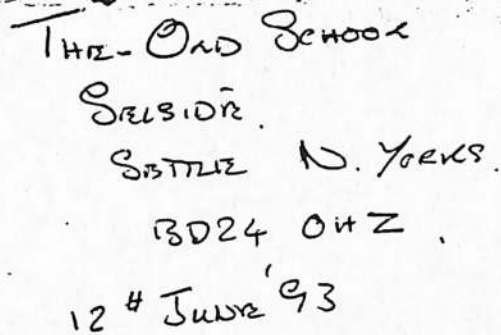 THE OLD SCHOOL
SELSIDE.
SETTLE N. YORKS.
BD24 0HZ.
12th JUNE '93